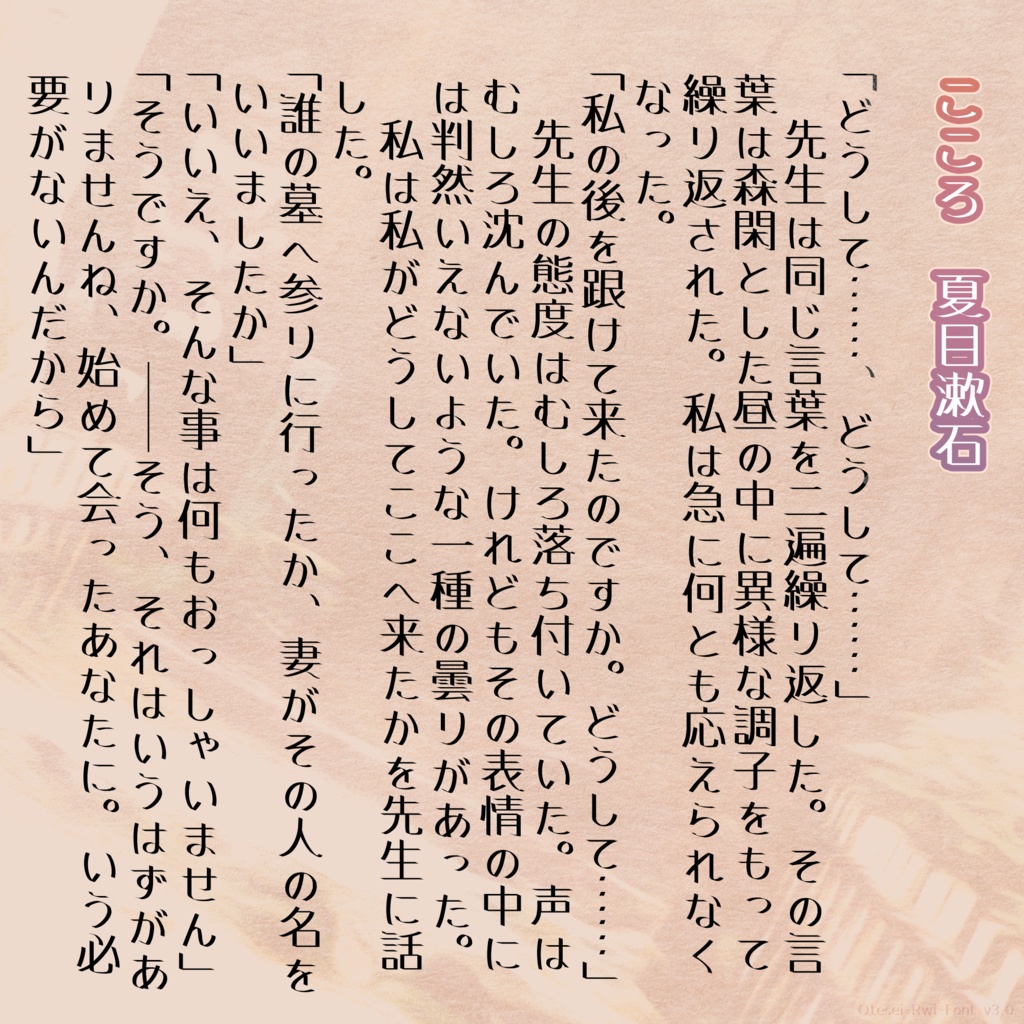 こころ　夏目漱石
「どうして……、どうして……」
　先生は同じ言葉を二遍繰り返した。その言
葉は森閑とした昼の中に異様な調子をもって
繰り返された。私は急に何とも応えられなく
なった。
「私の後を跟けて来たのですか。どうして……」
　先生の態度はむしろ落ち付いていた。声は
むしろ沈んでいた。けれどもその表情の中に
は判然いえないような一種の曇りがあった。
　私は私がどうしてここへ来たかを先生に話
した。
「誰の墓へ参りに行ったか、妻がその人の名を
いいましたか」
「いいえ、そんな事は何もおっしゃいません」
「そうですか。――そう、それはいうはずがあ
りませんね、始めて会ったあなたに。いう必
要がないんだから」
Qtesei-Rwi-Font v3.0